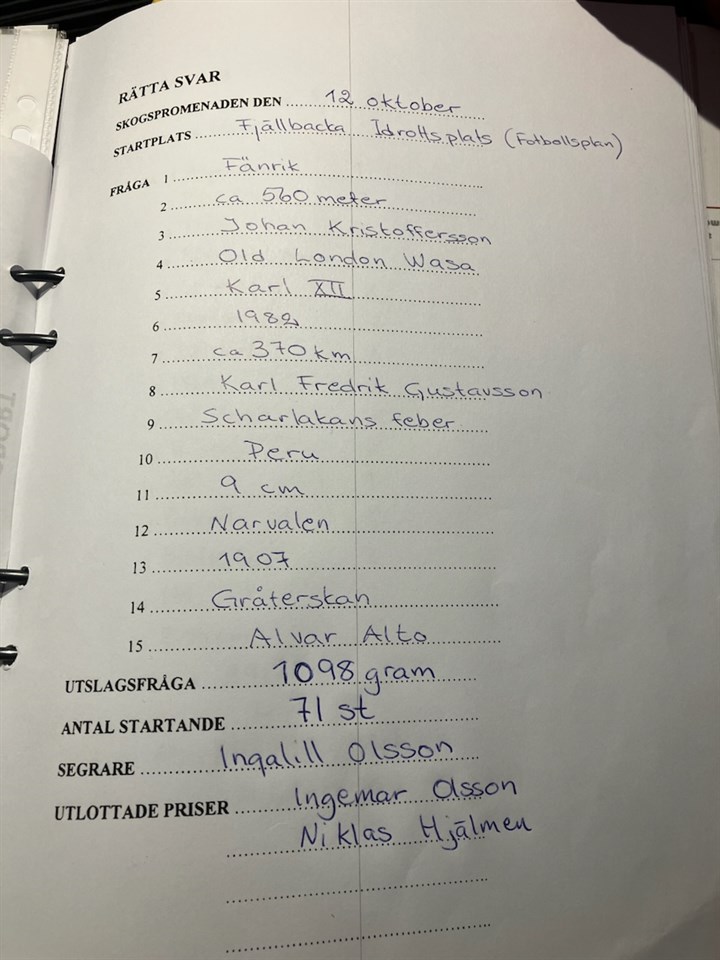 RÄTTA SVAR
SKOGSPROMENADEN DEN 12 oktober
STARTPLATS Fjällbacka Idrottsplats (Fotbollsplan)
FRÅGA 1 Fänrik
2 ca 560 meter
3 Johan Kristoffersson
4 Old London Wasa
5 Karl XII
6 1982
7 ca 370 km
8 Karl Fredrik Gustavsson
9 Scharlakans feber
10 Peru
11 9 cm
12 Narvalen
13 1907
14 Gråterskan
15 Alvar Alto
UTSLAGSFRÅGA 1098 gram
ANTAL STARTANDE 71 st
SEGRARE Ingalill Olsson
UTLOTTADE PRISER Ingemar Olsson
Niklas Hjälmen